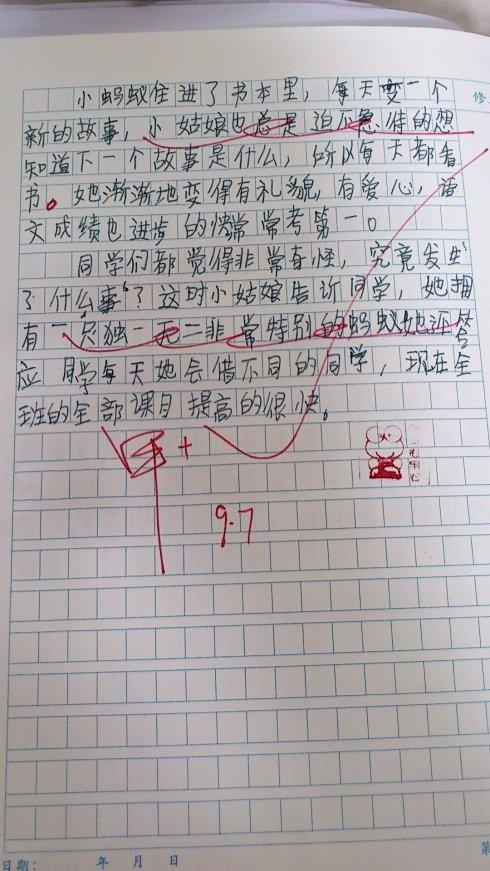 小蚂蚁住进了书本里，每天变一个
新的故事，小姑娘也总是迫不急待的想
知道下一个故事是什么，所以每天都看
书。她渐渐地变得有礼貌，有爱心，语
文成绩也进步的快常常考第一。
同学们都觉得非常奇怪，究竟发生
了什么事？这时小姑娘告诉同学，她拥
有一只独一无二非常特别的蚂蚁她还答
应同学每天她会借不同的同学，现在全
班的全部课目提高的很快。
9.7
修
日期： 年 月 日
第